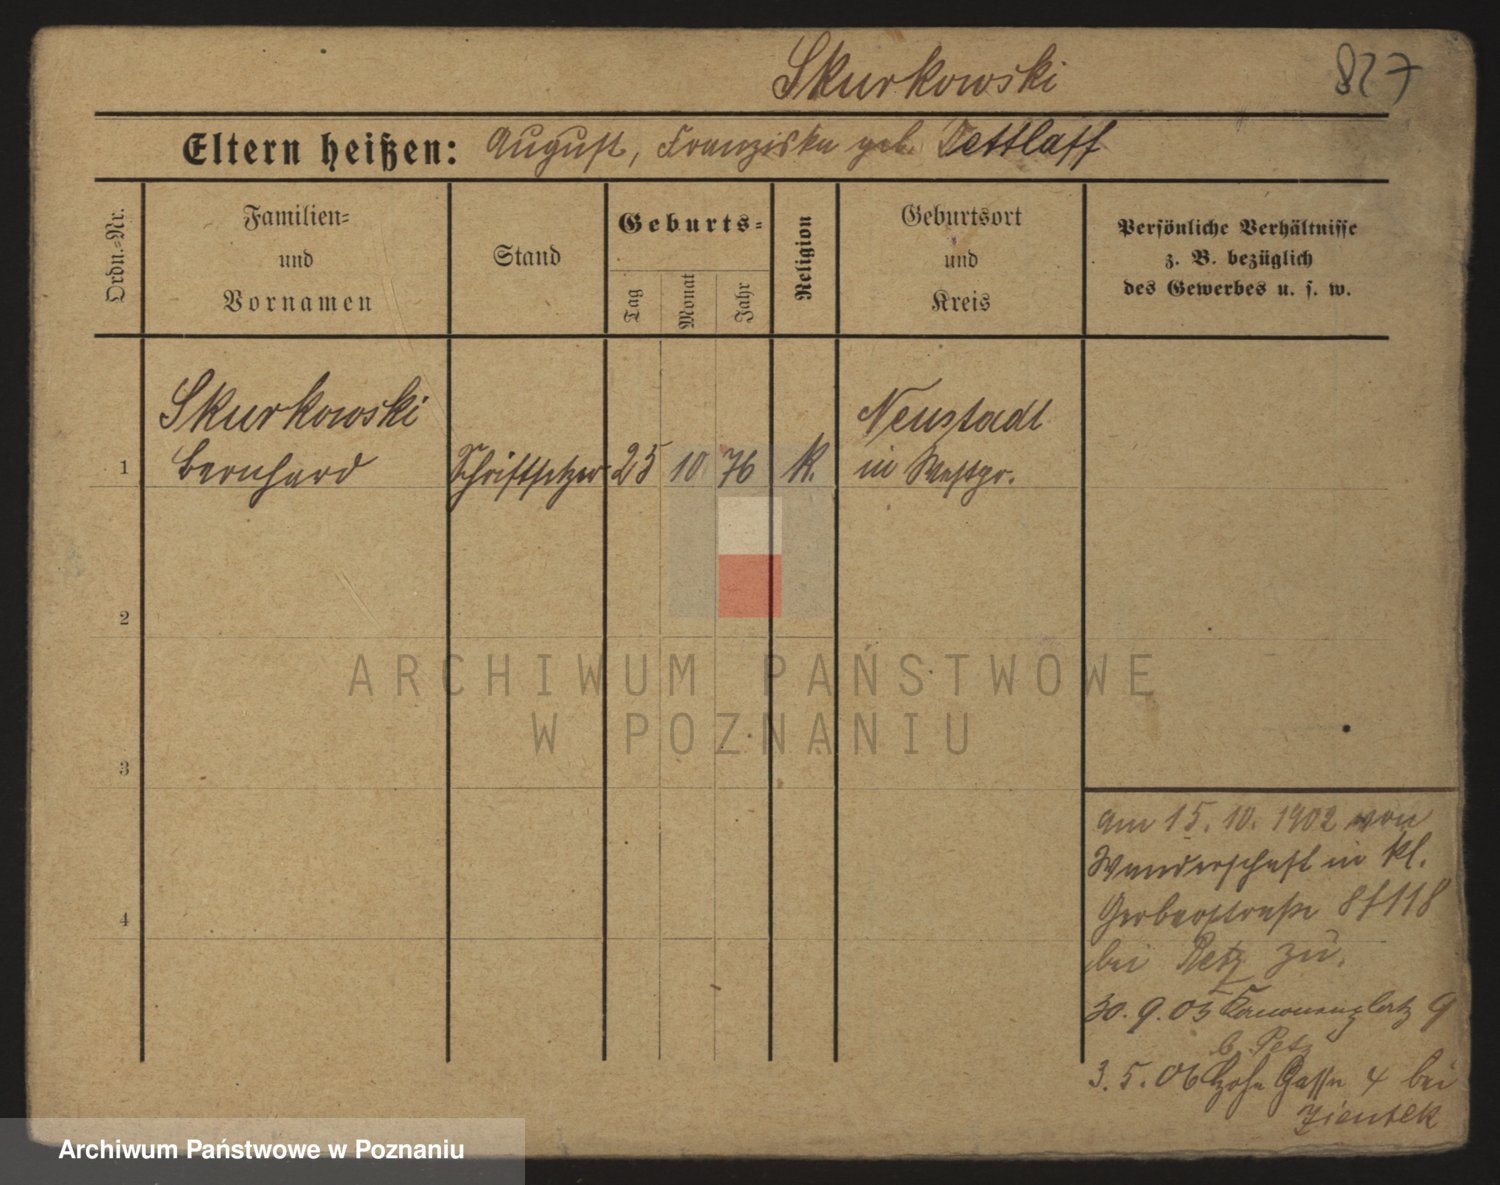 Skurkowski 827
Eltern heißen: August, Franziska geb. Tettlaff
Ordn.-Nr.
Familien-
und
Vornamen
Stand
Geburts-
Tag
Monat
Jahr
Religion
Geburtsort
und
Kreis
Persönliche Verhältnisse
z. B. bezüglich
des Gewerbes u. s. w.
Skurkowski
1 Bernhard Schriftsetzer 25 10. 76 k.
Neustadt
in Westpr.
2
3
4
am 15. 10. 1902 von
Wanderschaft in kl.
Gerberstraße 8
bei Petz zu.
30. 9. 05 Kanonenplatz 9
b. Petz
3. 5. 06 Hohe Gasse 4 bei
Zientek
ARCHIWUM PAŃSTWOWE
W POZNANIU
Archiwum Państwowe w Poznaniu